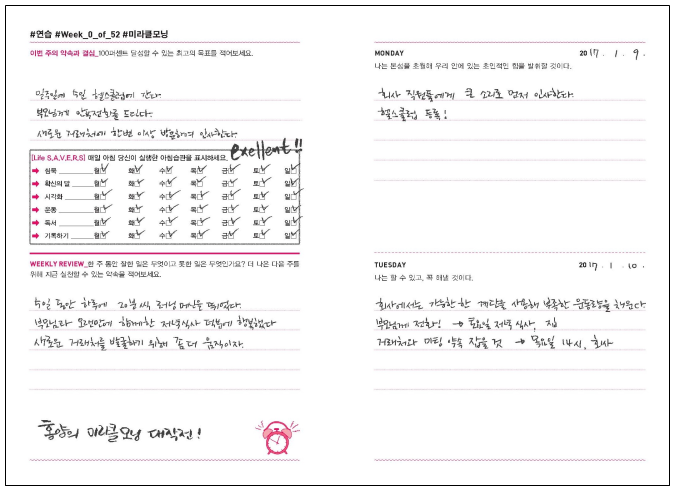 #연습 #Week_0_of_52 #미라클모닝
이번 주의 약속과 결심_100퍼센트 달성할 수 있는 최고의 목표를 적어보세요.
일주일에 5일 헬스클럽에 간다.
부모님께 안부전화를 드린다.
새로운 거래처에 한번 이상 방문하여 인사한다.
exellent!!
[Life S.A.V.E.R.S] 매일 아침 당신이 실행한 아침습관을 표시하세요.
침묵 월 화 수 목 금 토 일
확신의 말 월 화 수 목 금 토 일
시각화 월 화 수 목 금 토 일
운동 월 화 수 목 금 토 일
독서 월 화 수 목 금 토 일
기록하기 월 화 수 목 금 토 일
WEEKLY REVIEW_한 주 동안 잘한 일은 무엇이고 못한 일은 무엇인가요? 더 나은 다음 주를
위해 지금 실천할 수 있는 약속을 적어보세요.
5일 동안 하루에 20분씩 러닝머신을 뛰었다.
부모님과 오랜만에 함께한 저녁식사 덕분에 행복했다
새로운 거래처를 발굴하기 위해 좀 더 움직이자.
홍양의 미라클모닝 대작전!
MONDAY 2017. 1. 9.
나는 본성을 초월해 우리 안에 있는 초인적인 힘을 발휘할 것이다.
회사 직원들에게 큰 소리로 먼저 인사한다.
헬스클럽 등록!
TUESDAY 2017. 1. 10.
나는 할 수 있고, 꼭 해낼 것이다.
회사에서는 가능한 한 계단을 사용해 부족한 운동량을 채운다
부모님께 전화! → 토요일 저녁식사, 집
거래처와 미팅 약속 잡을 것 → 목요일 14시, 회사